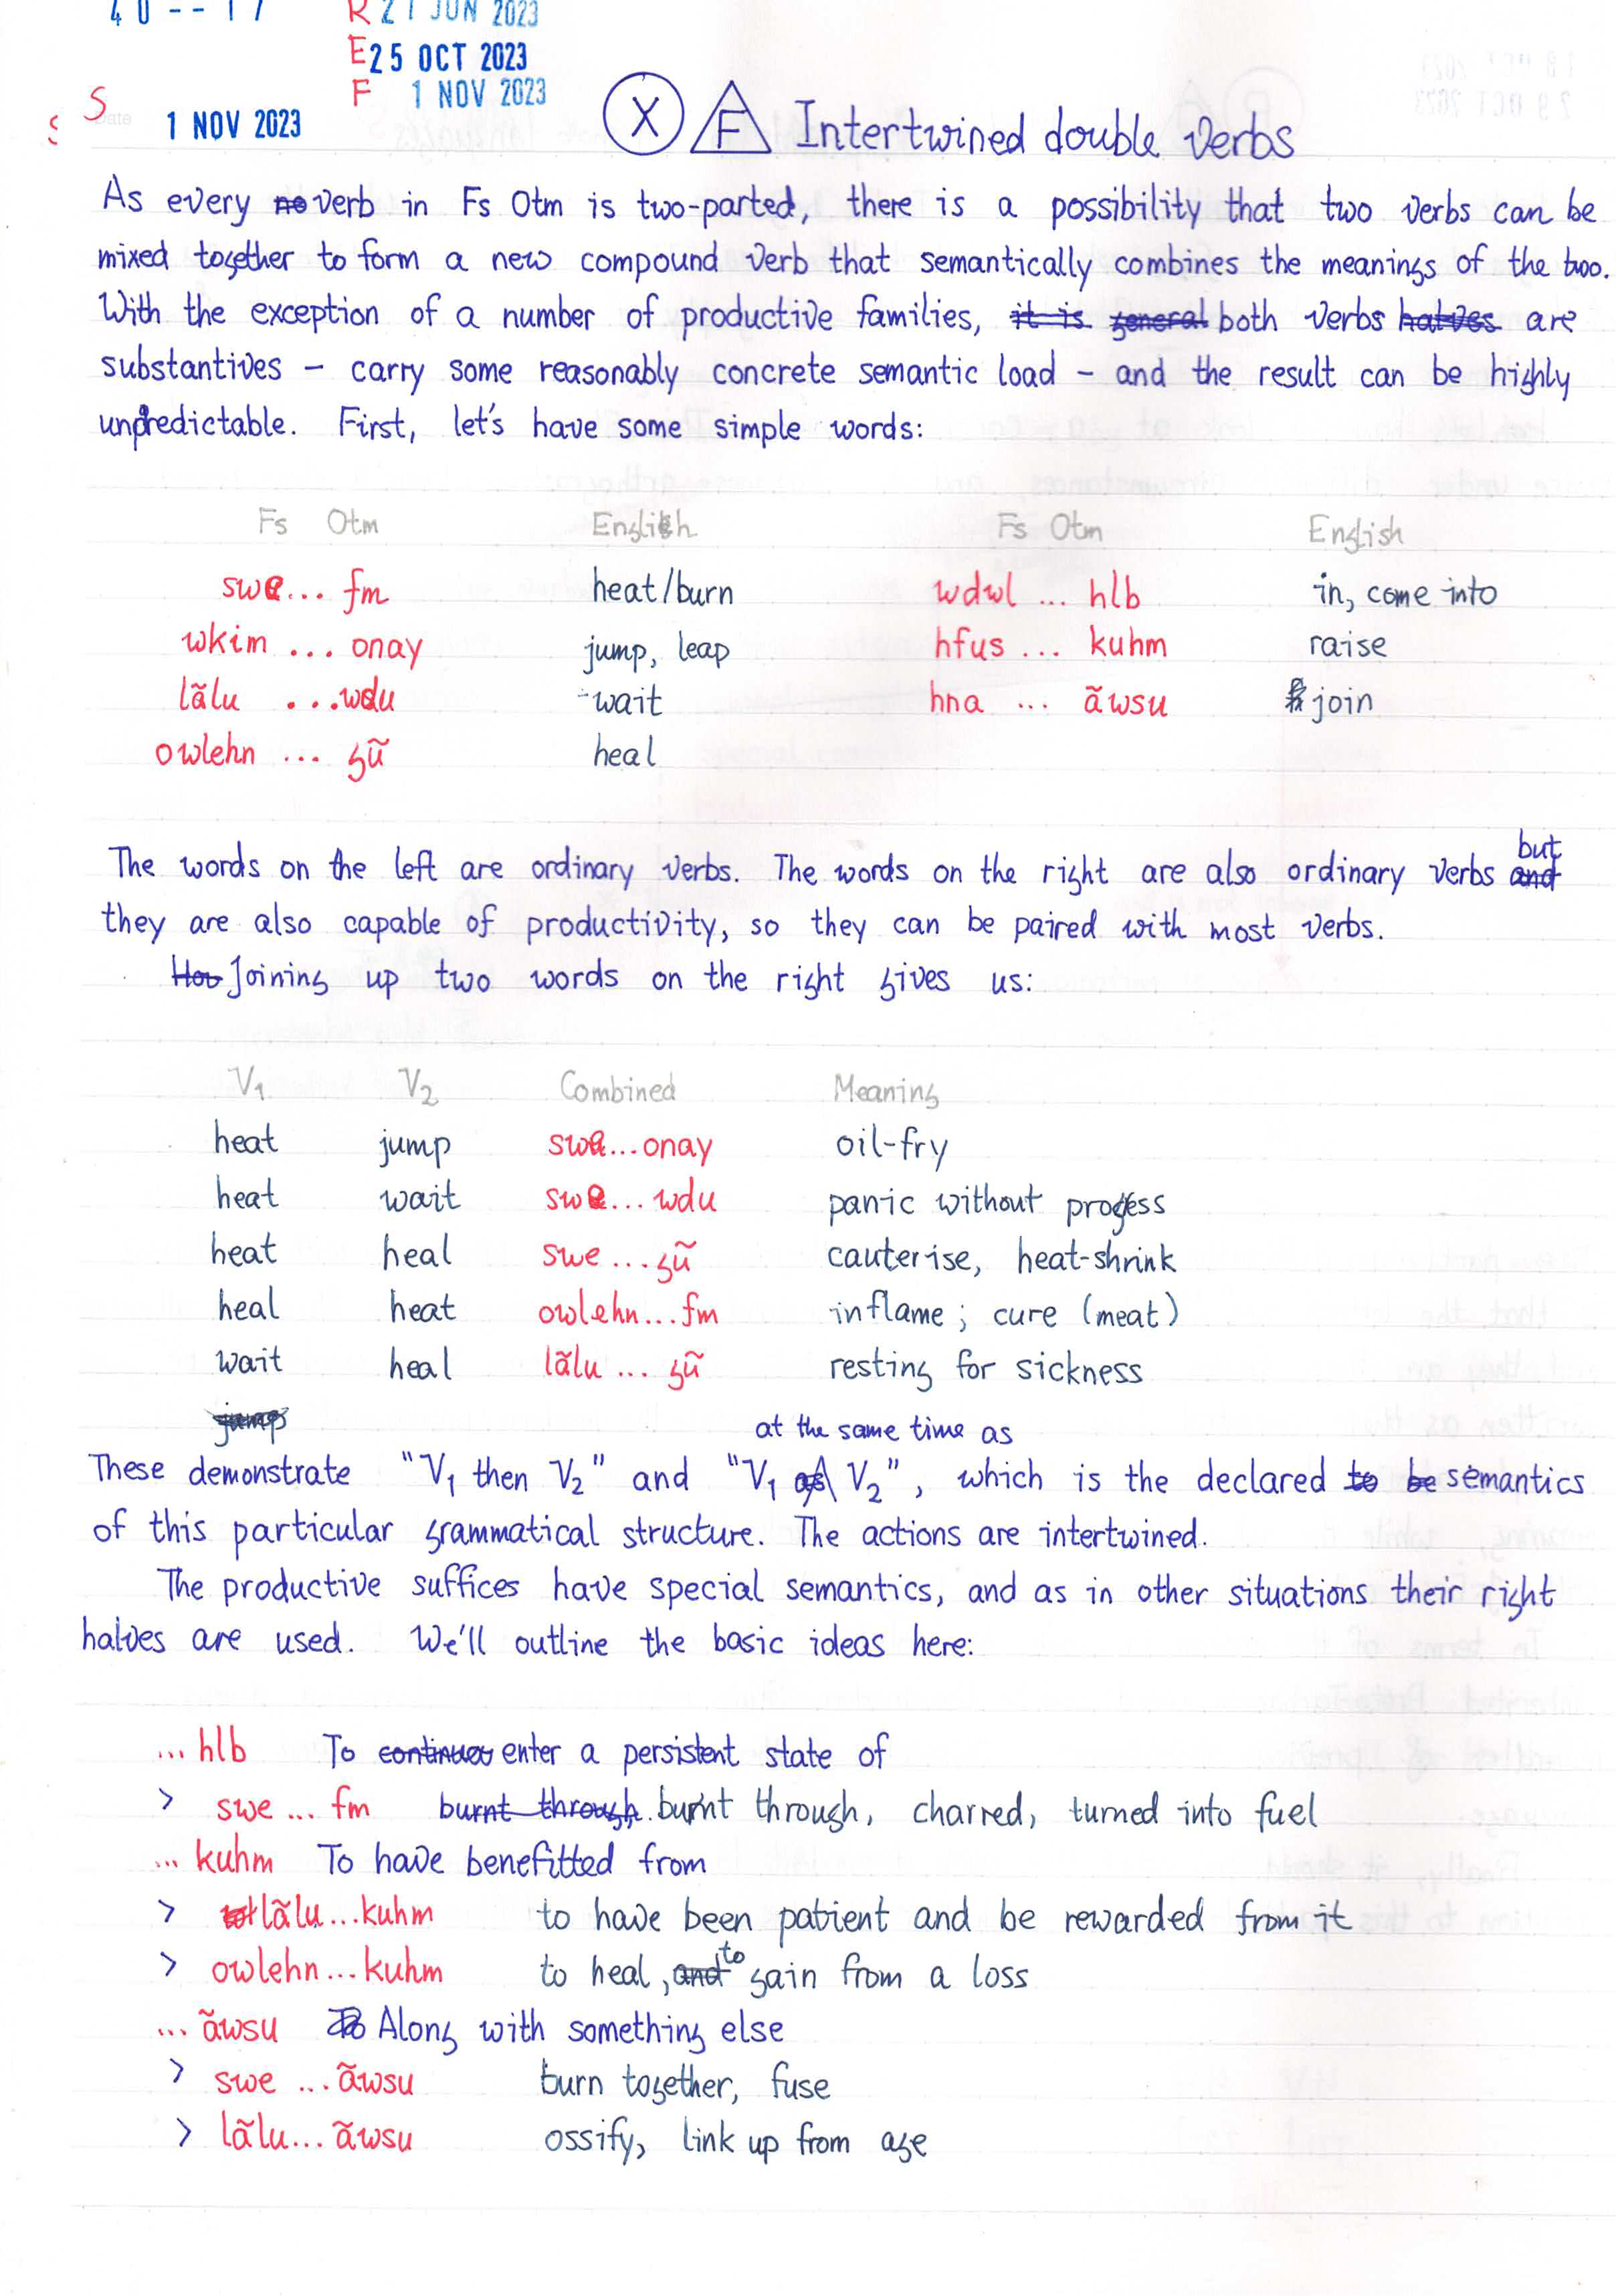 40--17
R 21 JUN 2023
E 25 OCT 2023
F 1 NOV 2023
S
Date 1 NOV 2023
X F Intertwined double verbs
As every verb in Fs Otm is two-parted, there is a possibility that two verbs can be
mixed together to form a new compound verb that semantically combines the meanings of the two.
With the exception of a number of productive families, it is general both verbs halves are
substantives – carry some reasonably concrete semantic load – and the result can be highly
unpredictable. First, let's have some simple words:
Fs Otm English Fs Otm English
swe... fm heat/burn wdwl ... hlb in, come into
wkim ... onay jump, leap hfus ... kuhm raise
lãlu ...wdu wait hna ... ãwsu join
owlehn ... gũ heal
The words on the left are ordinary verbs. The words on the right are also ordinary verbs but and
they are also capable of productivity, so they can be paired with most verbs.
How Joining up two words on the right gives us:
V1 V2 Combined Meaning
heat jump swe...onay oil-fry
heat wait swe...wdu panic without progress
heat heal swe...gũ cauterise, heat-shrink
heal heat owlehn...fm inflame; cure (meat)
wait heal lãlu ... gũ resting for sickness
jump
at the same time as
These demonstrate "V1 then V2" and "V1 as V2", which is the declared to be semantics
of this particular grammatical structure. The actions are intertwined.
The productive suffices have special semantics, and as in other situations their right
halves are used. We'll outline the basic ideas here:
... hlb To continues enter a persistent state of
> swe ... fm burnt through burnt through, charred, turned into fuel
... kuhm To have benefitted from
> lãlu...kuhm to have been patient and be rewarded from it
> owlehn...kuhm to heal, and to gain from a loss
... ãwsu To Along with something else
> swe ...ãwsu burn together, fuse
> lãlu... ãwsu ossify, link up from age